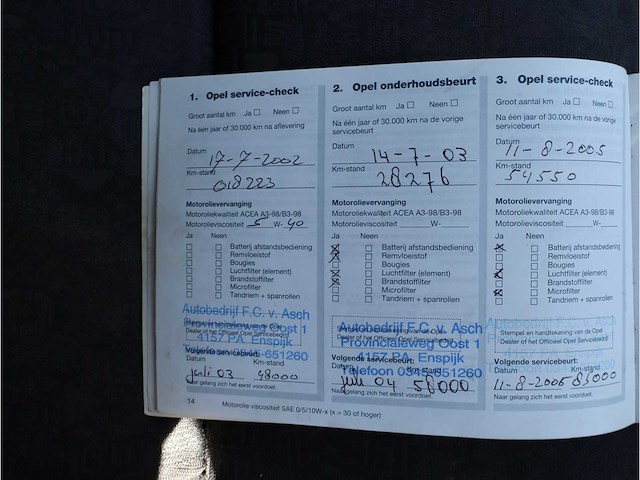 1. Opel service-check
Groot aantal km Ja Neen
Na één jaar of 30.000 km na aflevering
Datum
17-7-2002
Km-stand
018223
Motorolievervanging
Motoroliekwaliteit ACEA A3-98/B3-98
Motorolieviscositeit 5 W- 40
Ja Neen
Batterij afstandsbediening
Remvloeistof
Bougies
Luchtfilter (element)
Brandstoffilter
Microfilter
Tandriem + spanrollen
Autobedrijf F.C. v. Asch
Provincialeweg Oost 1
4157 PA Enspijk
651260
Volgende servicebeurt:
Datum Km-stand
juli 03 48000
Naar gelang zich het eerst voordoet.
14
2. Opel onderhoudsbeurt
Groot aantal km Ja Neen
Na één jaar of 30.000 km na de vorige
servicebeurt
Datum
14-7-03
Km-stand
28276
Motorolievervanging
Motoroliekwaliteit ACEA A3-98/B3-98
Motorolieviscositeit W-
Ja Neen
Batterij afstandsbediening
Remvloeistof
Bougies
Luchtfilter (element)
Brandstoffilter
Microfilter
Tandriem + spanrollen
Autobedrijf F.C. v. Asch
Dealer of het Officieel Opel Servicebedrijf
Provincialeweg Oost 1
4157 PA Enspijk
Telefoon 0345-651260
Volgende servicebeurt:
Datum Km-stand
juli 04 58000
Naar gelang zich het eerst voordoet.
Motorolie viscositeit SAE 0/5/10W-x (x = 30 of hoger)
3. Opel service-check
Groot aantal km Ja Neen
Na één jaar of 30.000 km na de vorige
servicebeurt
Datum
11-8-2005
Km-stand
54550
Motorolievervanging
Motoroliekwaliteit ACEA A3-98/B3-98
Motorolieviscositeit W-
Ja Neen
Batterij afstandsbediening
Remvloeistof
Bougies
Luchtfilter (element)
Brandstoffilter
Microfilter
Tandriem + spanrollen
Stempel en handtekening van de Opel
Dealer of het Officieel Opel Servicebedrijf
Volgende servicebeurt:
Datum Km-stand
11-8-2006 85000
Naar gelang zich het eerst voordoet.